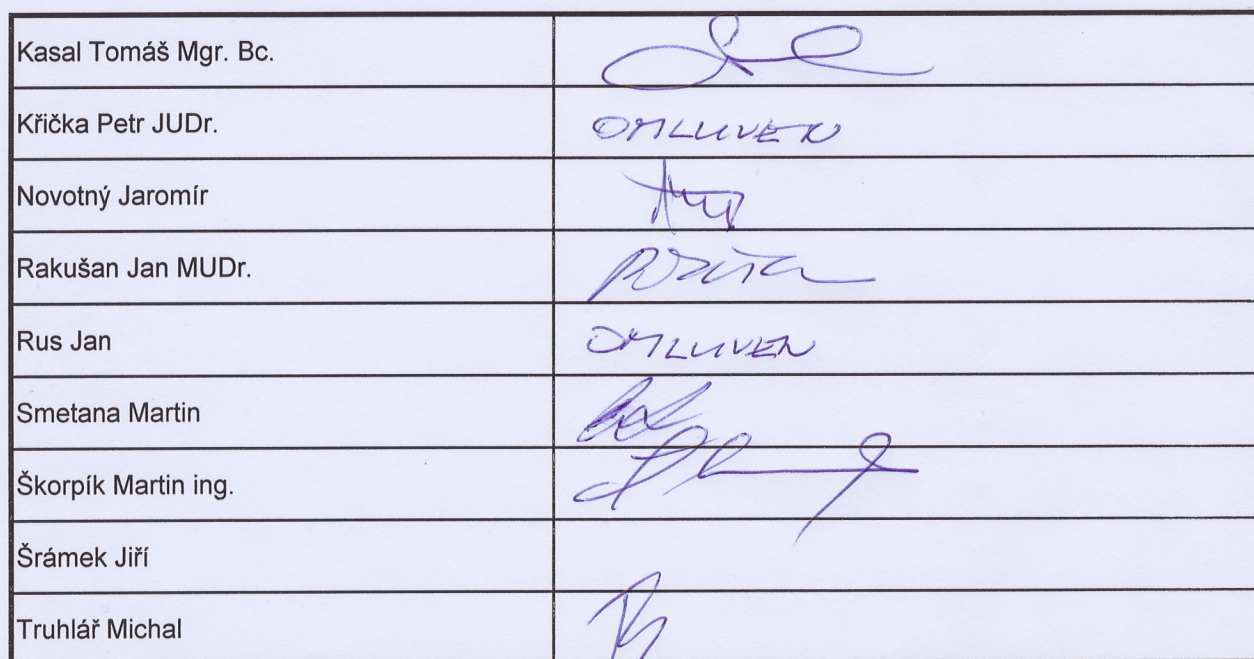 Kasal Tomáš Mgr. Bc.
Křička Petr JUDr. OMLUVEN
Novotný Jaromír
Rakušan Jan MUDr.
Rus Jan OMLUVEN
Smetana Martin
Škorpík Martin ing.
Šrámek Jiří
Truhlář Michal